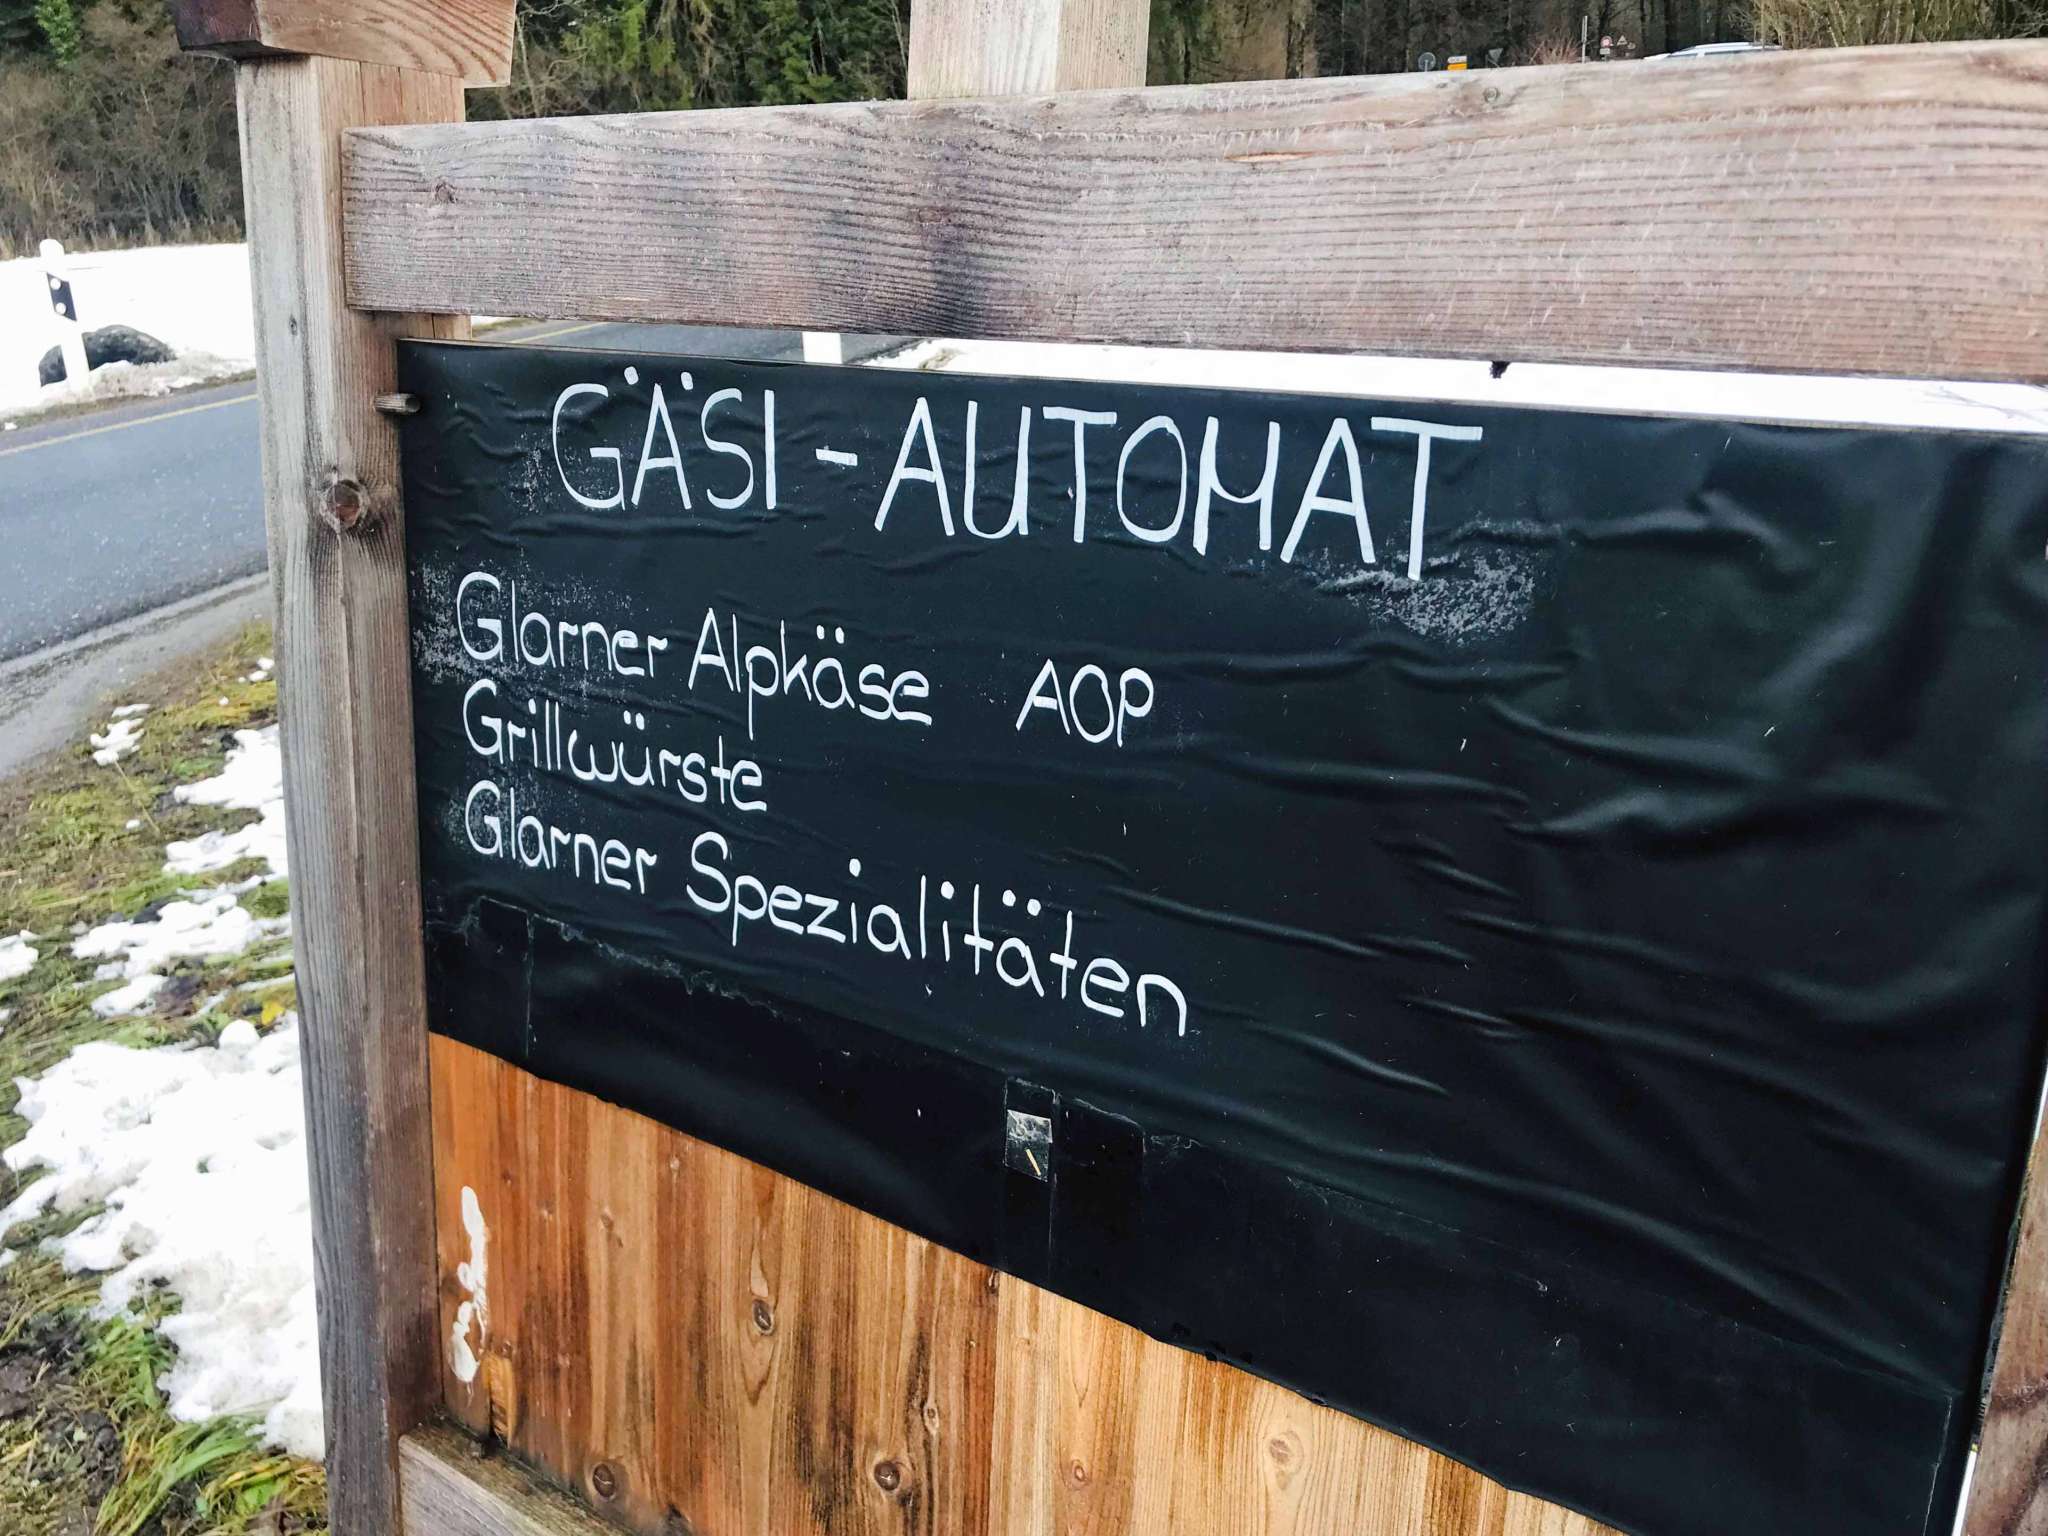 GÄSI - AUTOMAT
Glarner Alpkäse AOP
Grillwürste
Glarner Spezialitäten